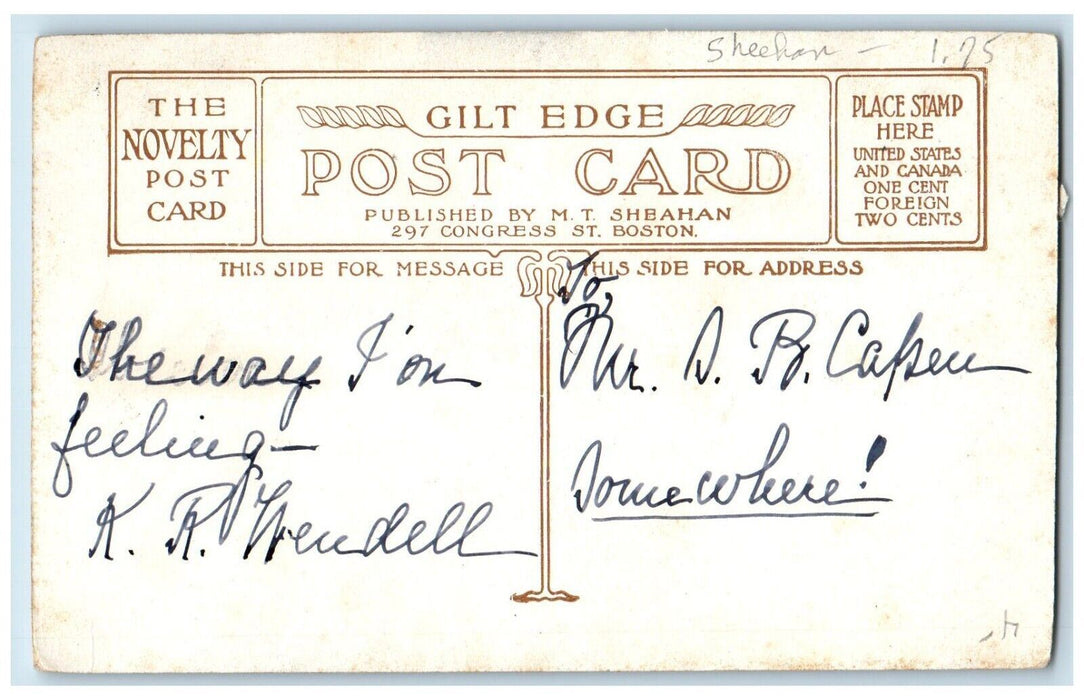 Sheehan — 1.75
THE
NOVELTY
POST
CARD
GILT EDGE
POST CARD
PUBLISHED BY M. T. SHEAHAN
297 CONGRESS ST. BOSTON.
PLACE STAMP
HERE
UNITED STATES
AND CANADA
ONE CENT
FOREIGN
TWO CENTS
THIS SIDE FOR MESSAGE
THIS SIDE FOR ADDRESS
The way I'm
feeling—
K. R. Wendell
To,
Mr. S. B. Capen
Somewhere!